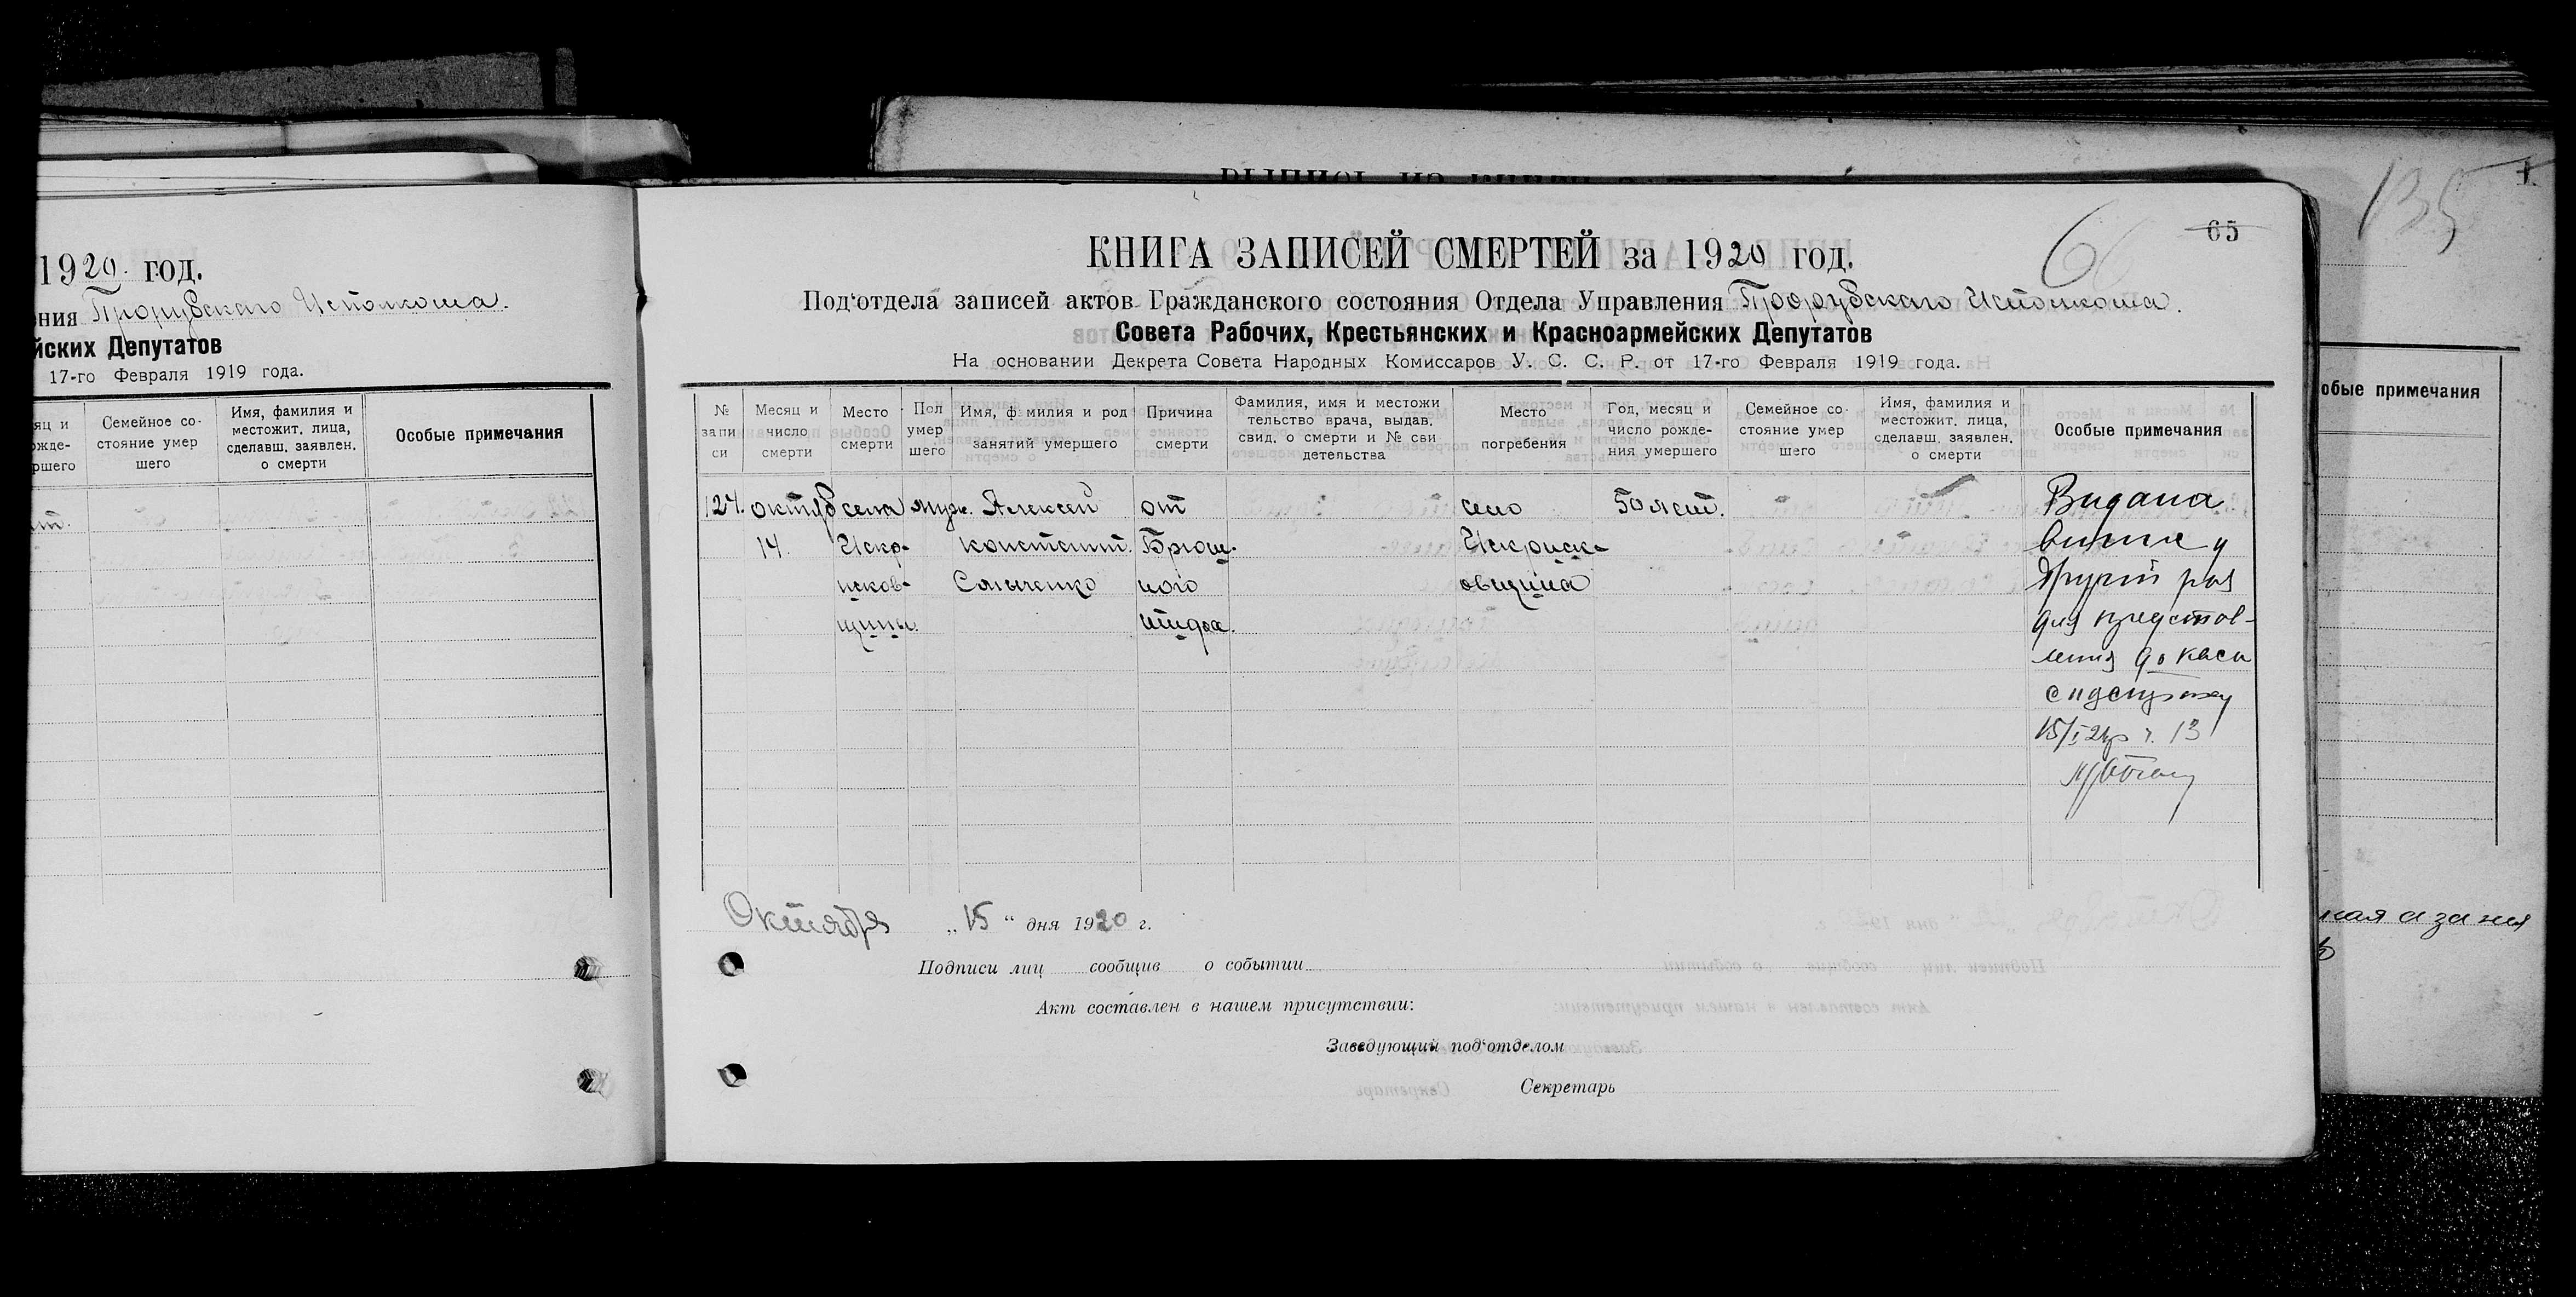 135
1920 год.
ния Прорубского Исполкома.
йских Депутатов
17-го Февраля 1919 года.
яц и
рожде-
ршего
Семейное со-
стояние умер
шего
Имя, фамилия и
местожит. лица,
сделавш. заявлен.
о смерти
Особые примечания
66
65
КНИГА ЗАПИСЕЙ СМЕРТЕЙ за 1920 год.
Под‘отдела записей актов Гражданского состояния Отдела Управления Прорубского Исполкома.
Совета Рабочих, Крестьянских и Красноармейских Депутатов
На основании Декрета Совета Народных Комиссаров У. С. С. Р. от 17-го Февраля 1919 года.
№
запи
си
Месяц и
число
смерти
Место
смерти
Пол
умер
шего
Имя, фамилия и род
занятий умершего
Причина
смерти
Фамилия, имя и местожи
тельство врача, выдав.
свид. о смерти и № сви
детельства
Место
погребения
Год, месяц и
число рожде-
ния умершего
Семейное со-
стояние умер
шего
Имя, фамилия и
местожит. лица,
сделавш. заявлен.
о смерти
Особые примечания
127. октяб села муж. Алексей от село 50 лет. Видана
14. Искр- Констант. Брюш- Искриск-
исков- ного овщина другий раз
щины. тифа. для представ-
лення до каси
15/I 2 р ч. 13
Октября „15“ дня 1920 г.
Подписи лиц сообщив о событии
Акт составлен в нашем присутствии:
Заведующий под‘отделом
Секретарь
обые примечания